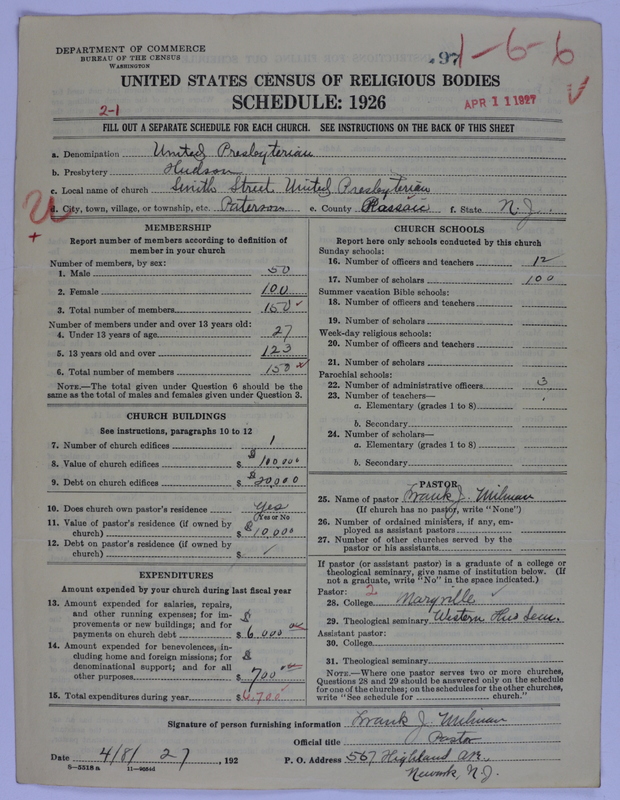 DEPARTMENT OF COMMERCE
BUREAU OF THE CENSUS
WASHINGTON
97
1-6-6
UNITED STATES CENSUS OF RELIGIOUS BODIES
SCHEDULE: 1926
APR 11 1927
2-1
FILL OUT A SEPARATE SCHEDULE FOR EACH CHURCH. SEE INSTRUCTIONS ON THE BACK OF THIS SHEET
a. Denomination United Presbyterian
b. Presbytery Hudson
c. Local name of church Smith Street United Presbyterian
d. City, town, village, or township, etc. Paterson e. County Passaic f. State N. J.
MEMBERSHIP
Report number of members according to definition of
member in your church
Number of members, by sex:
1. Male 50
2. Female 100
3. Total number of members 150
Number of members under and over 13 years old:
4. Under 13 years of age 27
5. 13 years old and over 123
6. Total number of members 150
NOTE.—The total given under Question 6 should be the
same as the total of males and females given under Question 3.
CHURCH BUILDINGS
See instructions, paragraphs 10 to 12
7. Number of church edifices 1
8. Value of church edifices $ 100,000
9. Debt on church edifices $ 20,000
10. Does church own pastor's residence Yes
(Yes or No)
11. Value of pastor's residence (if owned by
church) $ 10,000
12. Debt on pastor's residence (if owned by
church) $ ✓
EXPENDITURES
Amount expended by your church during last fiscal year
13. Amount expended for salaries, repairs,
and other running expenses; for im-
provements or new buildings; and for
payments on church debt $ 6,000
14. Amount expended for benevolences, in-
cluding home and foreign missions; for
denominational support; and for all
other purposes $ 700
15. Total expenditures during year $ 6,700
CHURCH SCHOOLS
Report here only schools conducted by this church
Sunday schools:
16. Number of officers and teachers 12
17. Number of scholars 100
Summer vacation Bible schools:
18. Number of officers and teachers
19. Number of scholars
Week-day religious schools:
20. Number of officers and teachers
21. Number of scholars
Parochial schools:
22. Number of administrative officers 3
23. Number of teachers—
a. Elementary (grades 1 to 8)
b. Secondary
24. Number of scholars—
a. Elementary (grades 1 to 8)
b. Secondary
PASTOR
25. Name of pastor Frank J. Milman
(If church has no pastor, write "None")
26. Number of ordained ministers, if any, em-
ployed as assistant pastors
27. Number of other churches served by the
pastor or his assistants
If pastor (or assistant pastor) is a graduate of a college or
theological seminary, give name of institution below. (If
not a graduate, write "No" in the space indicated.)
Pastor: 2
28. College Maryville
29. Theological seminary Western Theo Sem.
Assistant pastor:
30. College
31. Theological seminary
NOTE.—Where one pastor serves two or more churches,
Questions 28 and 29 should be answered only on the schedule
for one of the churches; on the schedules for the other churches,
write "See schedule for church."
Signature of person furnishing information Frank J. Milman
Official title Pastor
Date 4/8/27, 192 P. O. Address 567 Highland Ave.
Newark, N. J.
8—5518 a